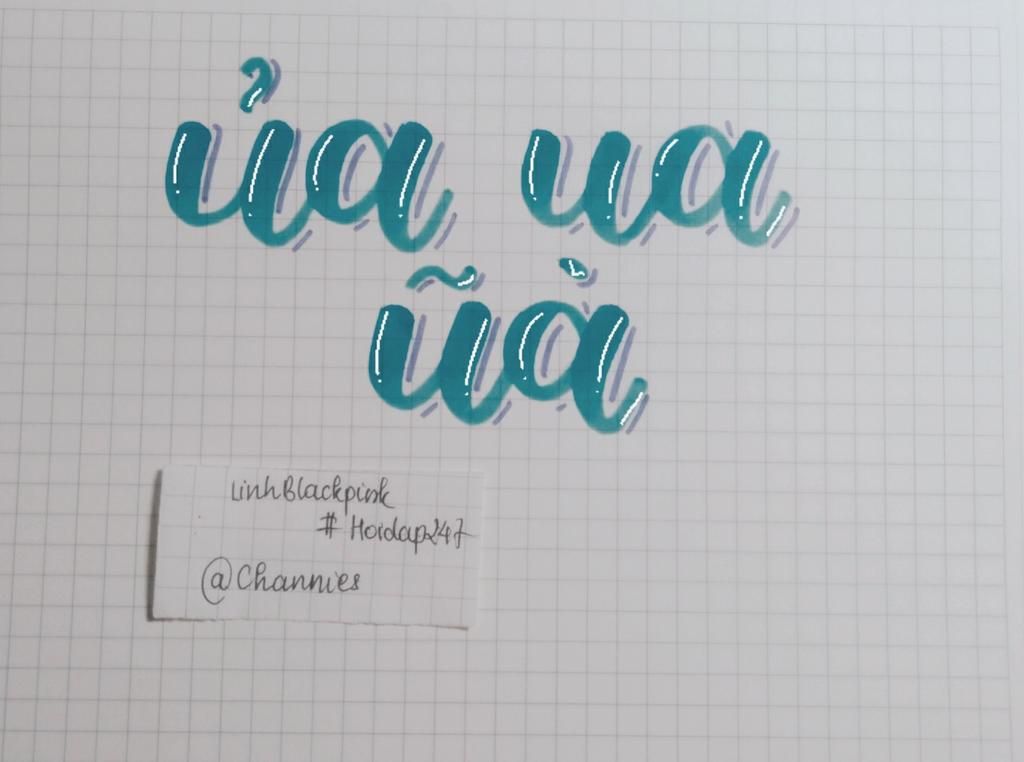 ủa ua
ũà
LinhBlackpink
# Hoidap247
@Channies